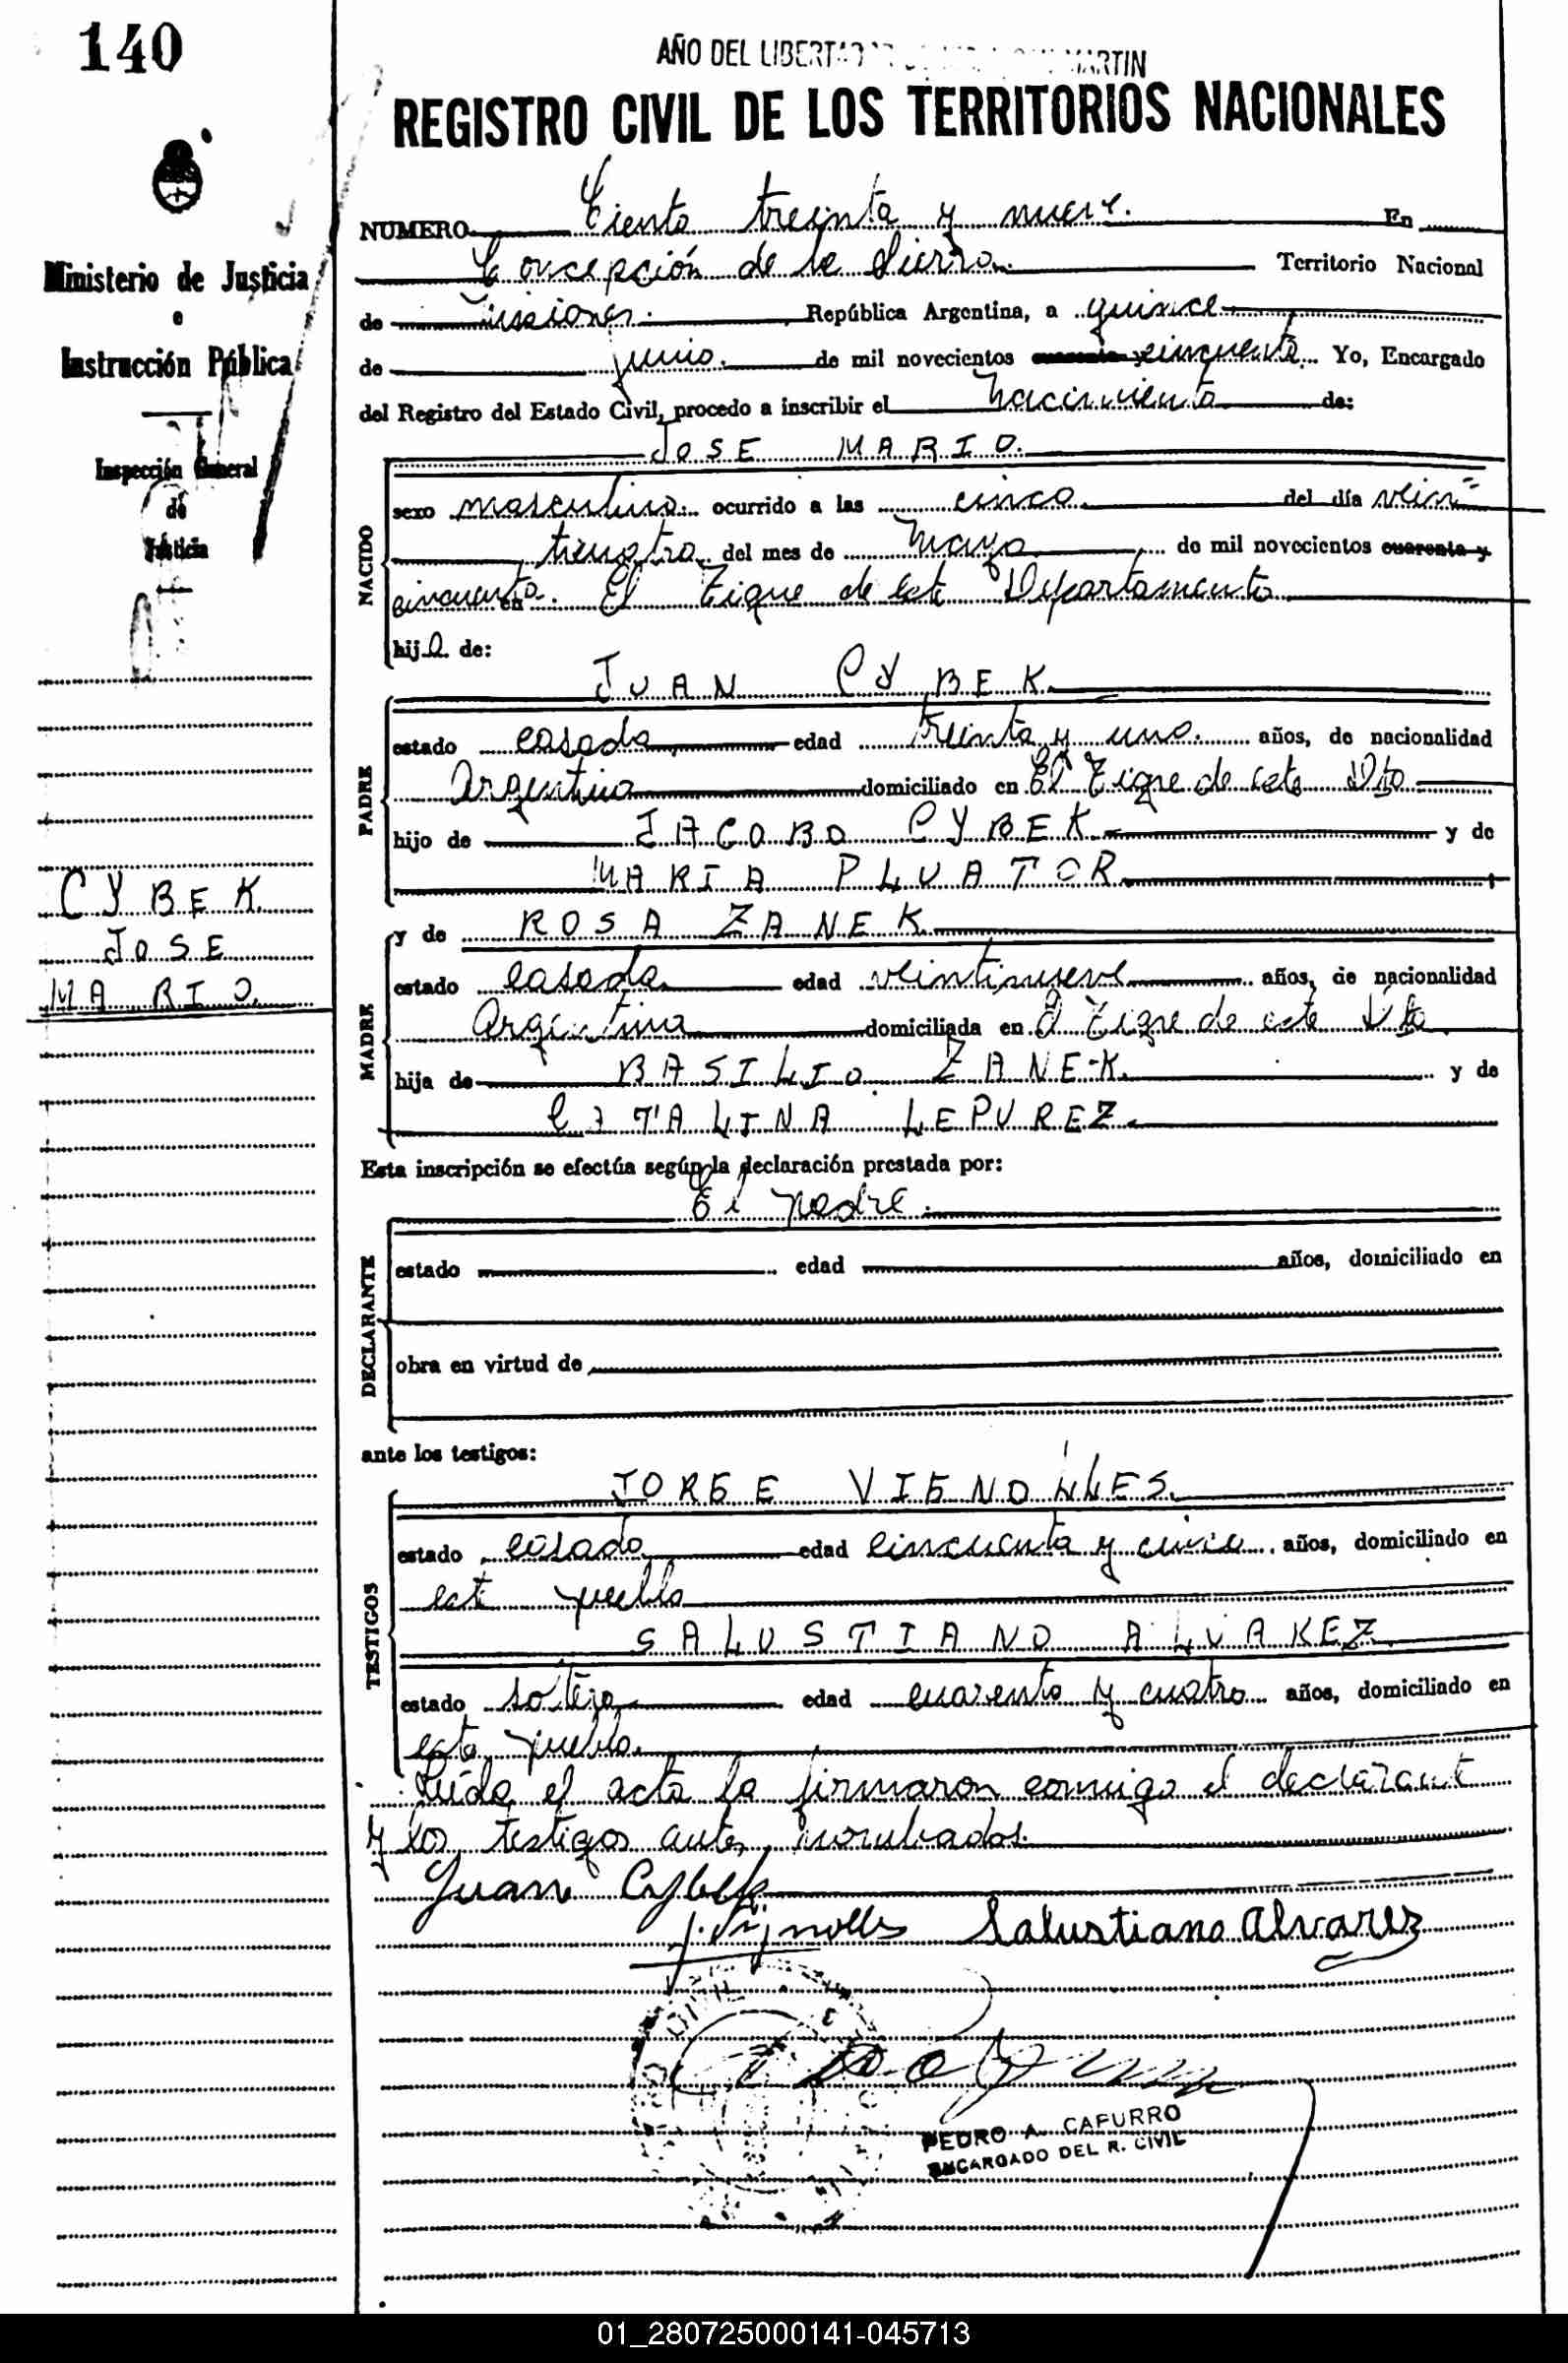 140
AÑO DEL LIBERTADOR MARTIN
REGISTRO CIVIL DE LOS TERRITORIOS NACIONALES
Ministerio de Justicia
e
Instrucción Pública
Inspección General
de
Justicia
CYBEK
JOSE
MARIO.
NUMERO Ciento treinta y nueve. En
Concepción de la Sierra. Territorio Nacional
de Misiones. República Argentina, a quince
de junio. de mil novecientos cuarenta y cincuenta. Yo, Encargado
del Registro del Estado Civil, procedo a inscribir el Nacimiento de:
JOSE MARIO.
NACIDO
sexo masculino. ocurrido a las cinco. del día vein-
ticuatro. del mes de Mayo de mil novecientos cuarenta y
cincuenta. en El Tigre de este Departamento
hijo de:
JUAN CYBEK.
PADRE
estado casado edad treinta y uno. años, de nacionalidad
Argentina domiciliado en El Tigre de este Dto
hijo de JACOBO CYBEK y de
MARIA PLUATOR
MADRE
y de ROSA ZANEK.
estado casada. edad veintinueve años, de nacionalidad
Argentina domiciliada en El Tigre de este Dto
hija de BASILIO ZANEK. y de
CATALINA LEPUREZ.
Esta inscripción se efectúa según la declaración prestada por:
El padre.
DECLARANTE
estado edad años, domiciliado en
obra en virtud de
ante los testigos:
JORGE VIGNOLLES.
TESTIGOS
estado casado edad cincuenta y cinco años, domiciliado en
este pueblo
SALUSTIANO ALVAREZ
estado soltero edad cuarenta y cuatro años, domiciliado en
este pueblo.
Leída el acta la firmaron conmigo el declarante
y los testigos antes nombrados.
Juan Cybek
J. Vignolles Salustiano Alvarez
PEDRO A. CAFURRO
ENCARGADO DEL R. CIVIL
01_280725000141-045713